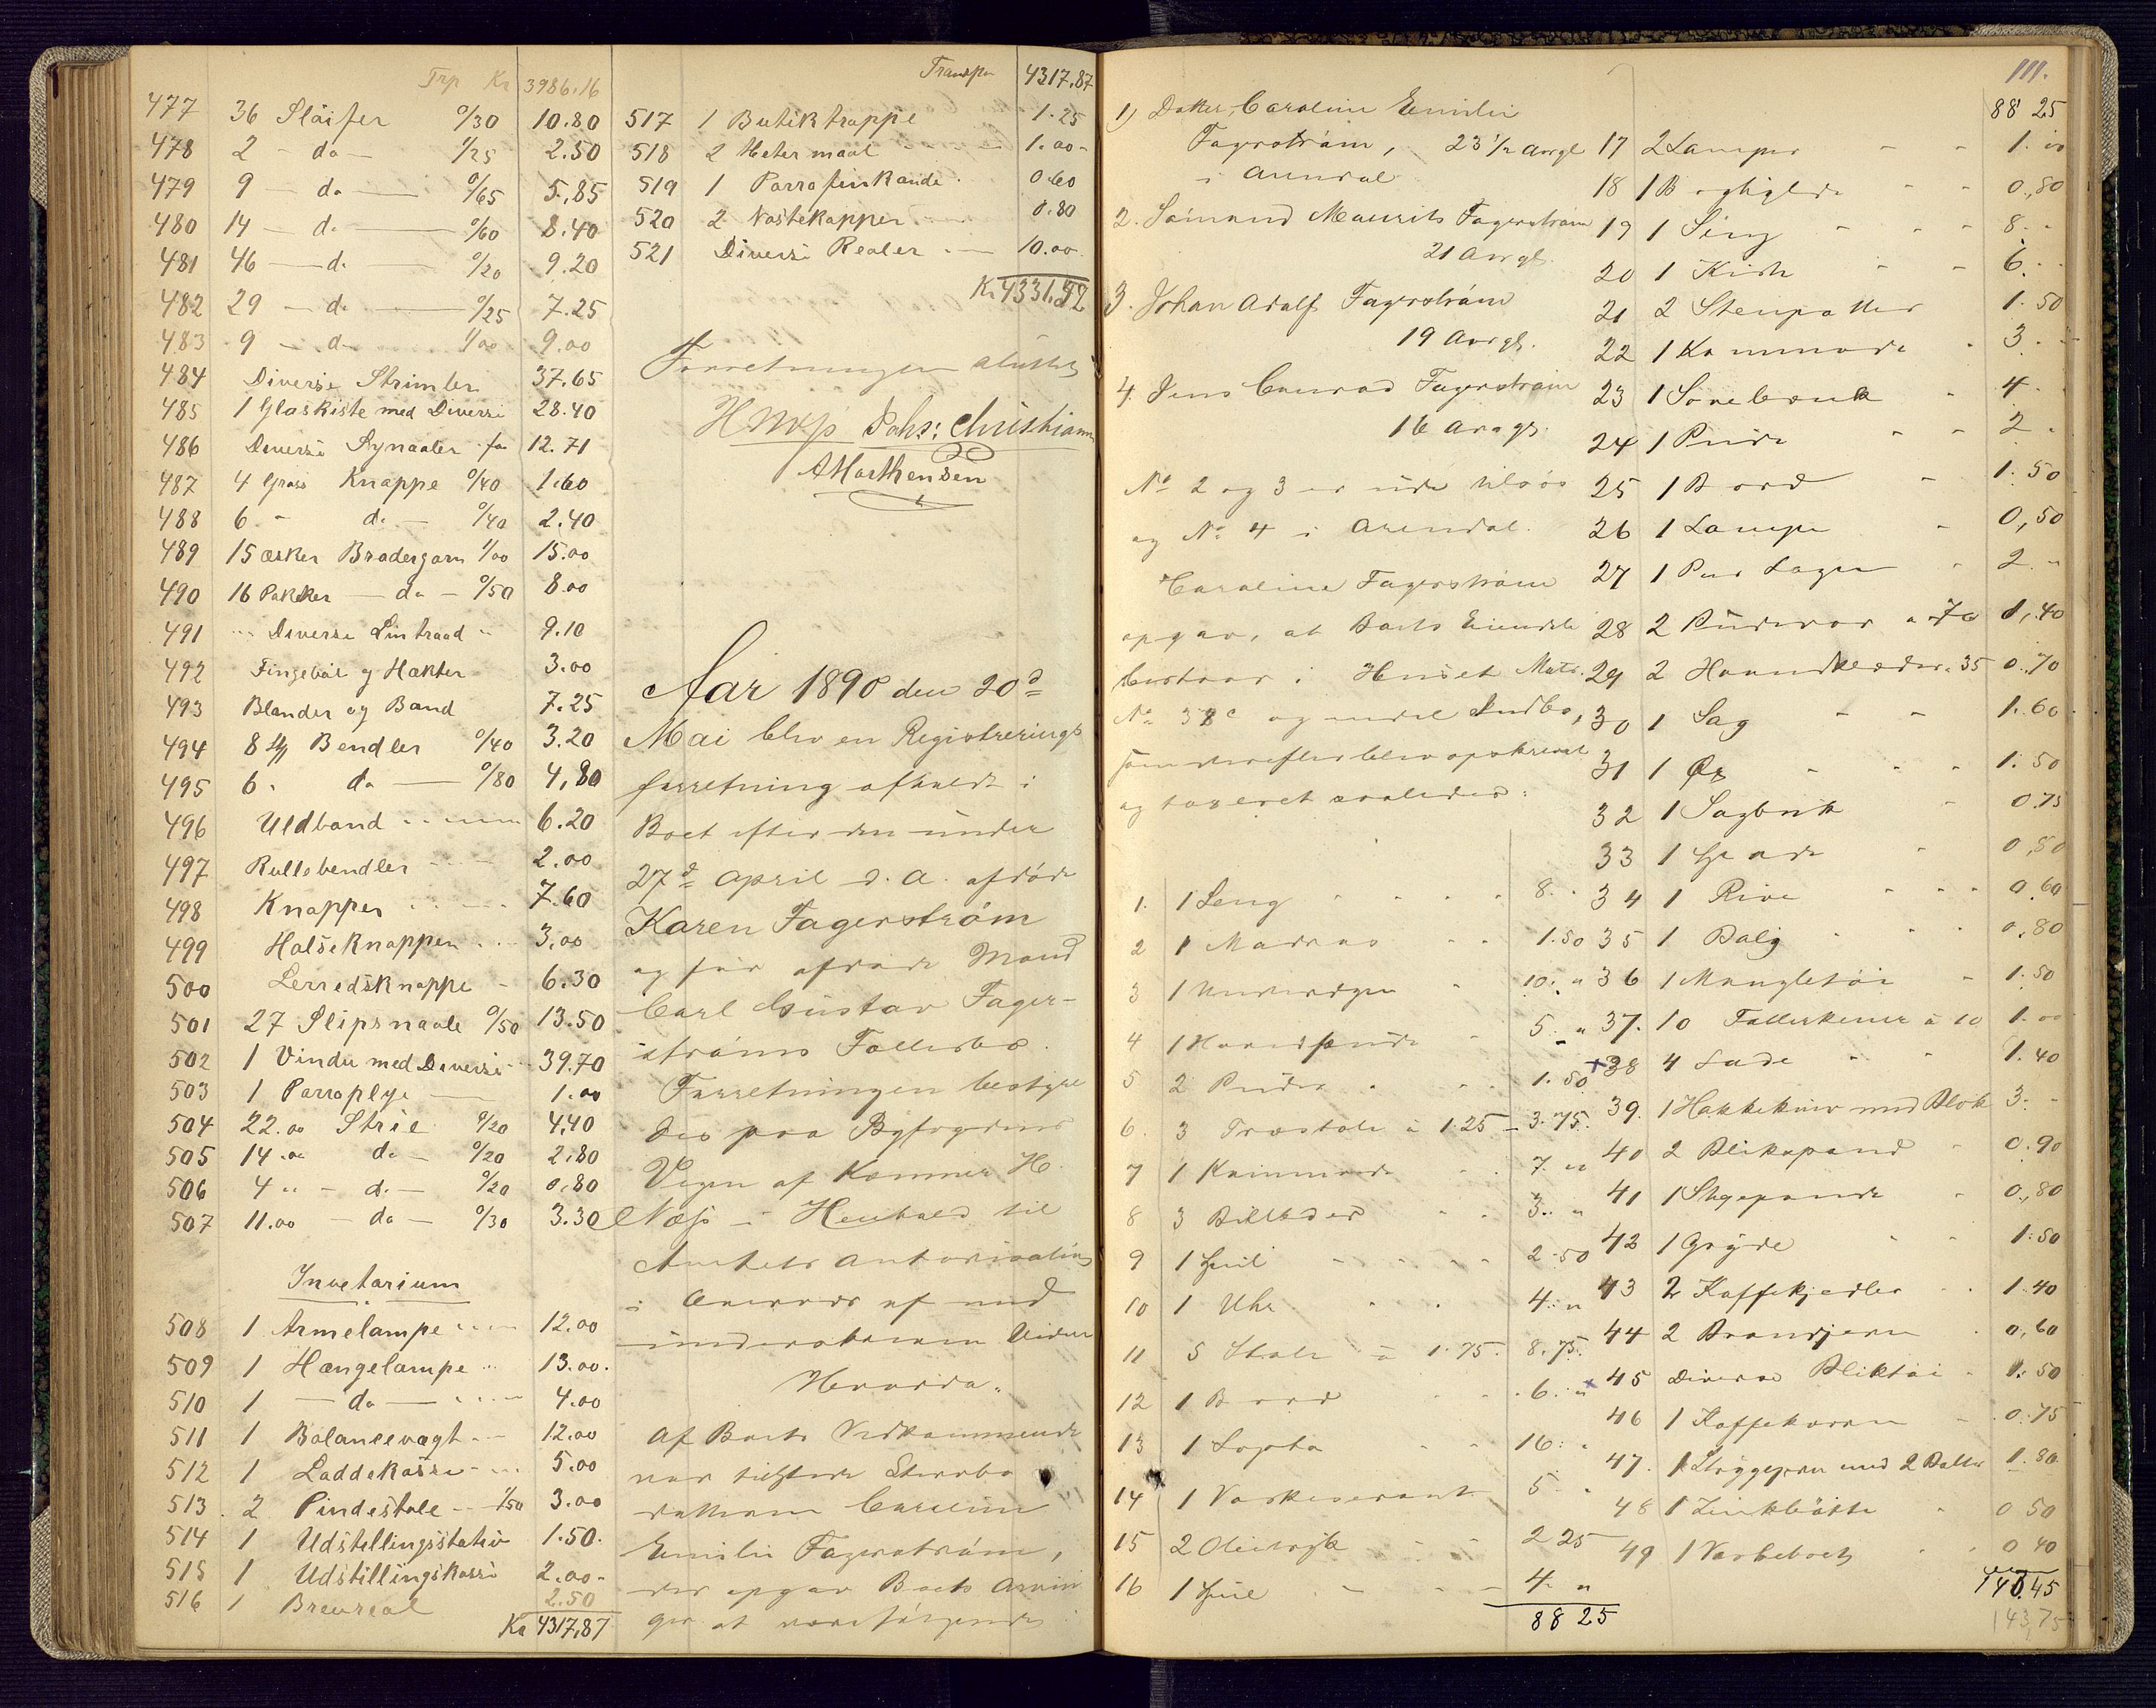 Trp Kr 3986.16
477 36 Slöifer 0/30 10.80
478 2 - do - 1/25 2.50
479 9 - do - 0/65 5.85
480 14 - do - 0/60 8.40
481 46 - do - 0/20 9.20
482 29 - do - 0/25 7.25
483 9 - do - 1/00 9.00
484 Diverse Strimler 37.65
485 1 Glaskiste med Diverse 28.40
486 Diverse Synaaler for 12.71
487 4 Gross Knappe 0/40 1.60
488 6 - do - 0/40 2.40
489 15 æsker Brodergarn 1/00 15.00
490 16 Pakker - do - 0/50 8.00
491 Diverse Lintraad 9.10
492 Fingebøl og Hækter 3.00
493 Blander og Baand 7.25
494 8 st Bendler 0/40 3.20
495 6 do - 0/80 4.80
496 Uldband 6.20
497 Rullebendler 2.00
498 Knapper 7.60
499 Halseknapper 3.00
500 Lerredsknappe 6.30
501 27 Slipsnaale 0/50 13.50
502 1 Vindu med Diverse 39.70
503 1 Parraplye 1.00
504 22.00 Strie 0/20 4.40
505 14.00 do - 0/20 2.80
506 4 " - do - 0/20 0.80
507 11.00 - do - 0/30 3.30
Invetarium
508 1 Armelampe 12.00
509 1 Hængelampe 13.00
510 1 - do - 4.00
511 1 Balancevægt 12.00
512 1 Laddekasse 5.00
513 2 Pindestole 1/50 3.00
514 1 Udstillingsstativ 1.50
515 1 Udstillingskasse 2.00
516 1 Brevreal 2.50
Kr 4317.87
Transpor 4317.87
517 1 Butiktrappe 1.25
518 2 Metermaal 1.00
519 1 Parrafinkande 0.60
520 2 Nöstekopper 0.80
521 Diverse Realer 10.00
Kr 4331.52
Forretningen sluttet
H Næss Johs: Christians
A Marthensen
Aar 1890 den 20d
Mai blev en Registrerings
forretning afholdt i
Boet efter den under
27d April d. A. afdöde
Karen Fagerström
og för afdöde Mand
Carl Gustav Fager-
ströms Fællesbo.
Forretningen bestyre
des paa Byfogdens
Vegne af Kæmner H.
Næss i Henhold til
Amtets Autorisation
i Overvær af med
undertegnede Vidner
Hvorda.
Af Boets Vedkommende
var tilstede Sterbo
datteren Caroline
Emilie Fagerström,
der opgav Boets Arvin
ger at være fölgende
111.
1) Datter Caroline Emilie
Fagerström, 23 1/2 Aargl
i Arendal
2. Sömand Maurits Fagerström
21 Aargl.
3. Johan Adolf Fagerström
19 Aargl.
4. Jens Conrad Fagerström
16 Aargl.
No 2 og 3 er ude tilsös
og No 4 i Arendal.
Caroline Fagerström
opgav, at Boets Eiendele
bestaar i Huset Matr.
No 38c og endel Indbo,
som derefter blev opskrevet
og taxeret saaledes:
1. 1 Seng 8. "
2 1 Madras 1.50
3 1 Underdyne 10. "
4 1 Hovedpude 5. "
5 2 Puder 1.50
6. 3 Træstole à 1.25 3.75
7 1 Kommode 7. "
8 3 Billeder 3. "
9 1 Speil 2.50
10 1 Uhr 4. "
11 5 Stole à 1.75 8.75
12 1 Bord 6. "
13 1 Sopha 16. "
14 1 Vaskeservant 5. "
15 2 2 25
16 1 Speil 4. "
88 25
88 25
17 2 Lamper 1. 00
18 1 0.80
19 1 Seng 8. "
20 1 Kiste 6. "
21 2 Stenpotter 1.50
22 1 Kommode 3. "
23 1 Sovebænk 4. "
24 1 Pude 2. "
25 1 Bord 1.50
26 1 Lampe 0,50
27 1 Par Lagen 2. "
28 2 Pudevar a 70 1.40
29 2 Haandklæder a 35 0.70
30 1 Sag 1.60
31 1 Øx 1.50
32 1 Sagbuk 0.75
33 1 Spade 0,80
34 1 Rive 0.60
35 1 Balg 0.80
36 1 Mangletöi 1.50
37. 10 Tallerkener à 10 1.00
+38 4 Fade 1.40
39. 1 Hakkekniv med Blok 3. -
40 2 Blikspand 0.90
41 1 Stegepande 0.80
42 1 Gryde 1.50
43 2 Kaffekjedler 1.40
44 2 Brandjern 0.60
+45 Diverse Bliktöi 1.50
46 1 Kaffekværn 0.75
47. 1 Strygejern med 2 Bolter 1.80
48 1 Zinkbötte 0 50
49 1 0 40
140.45
143,75